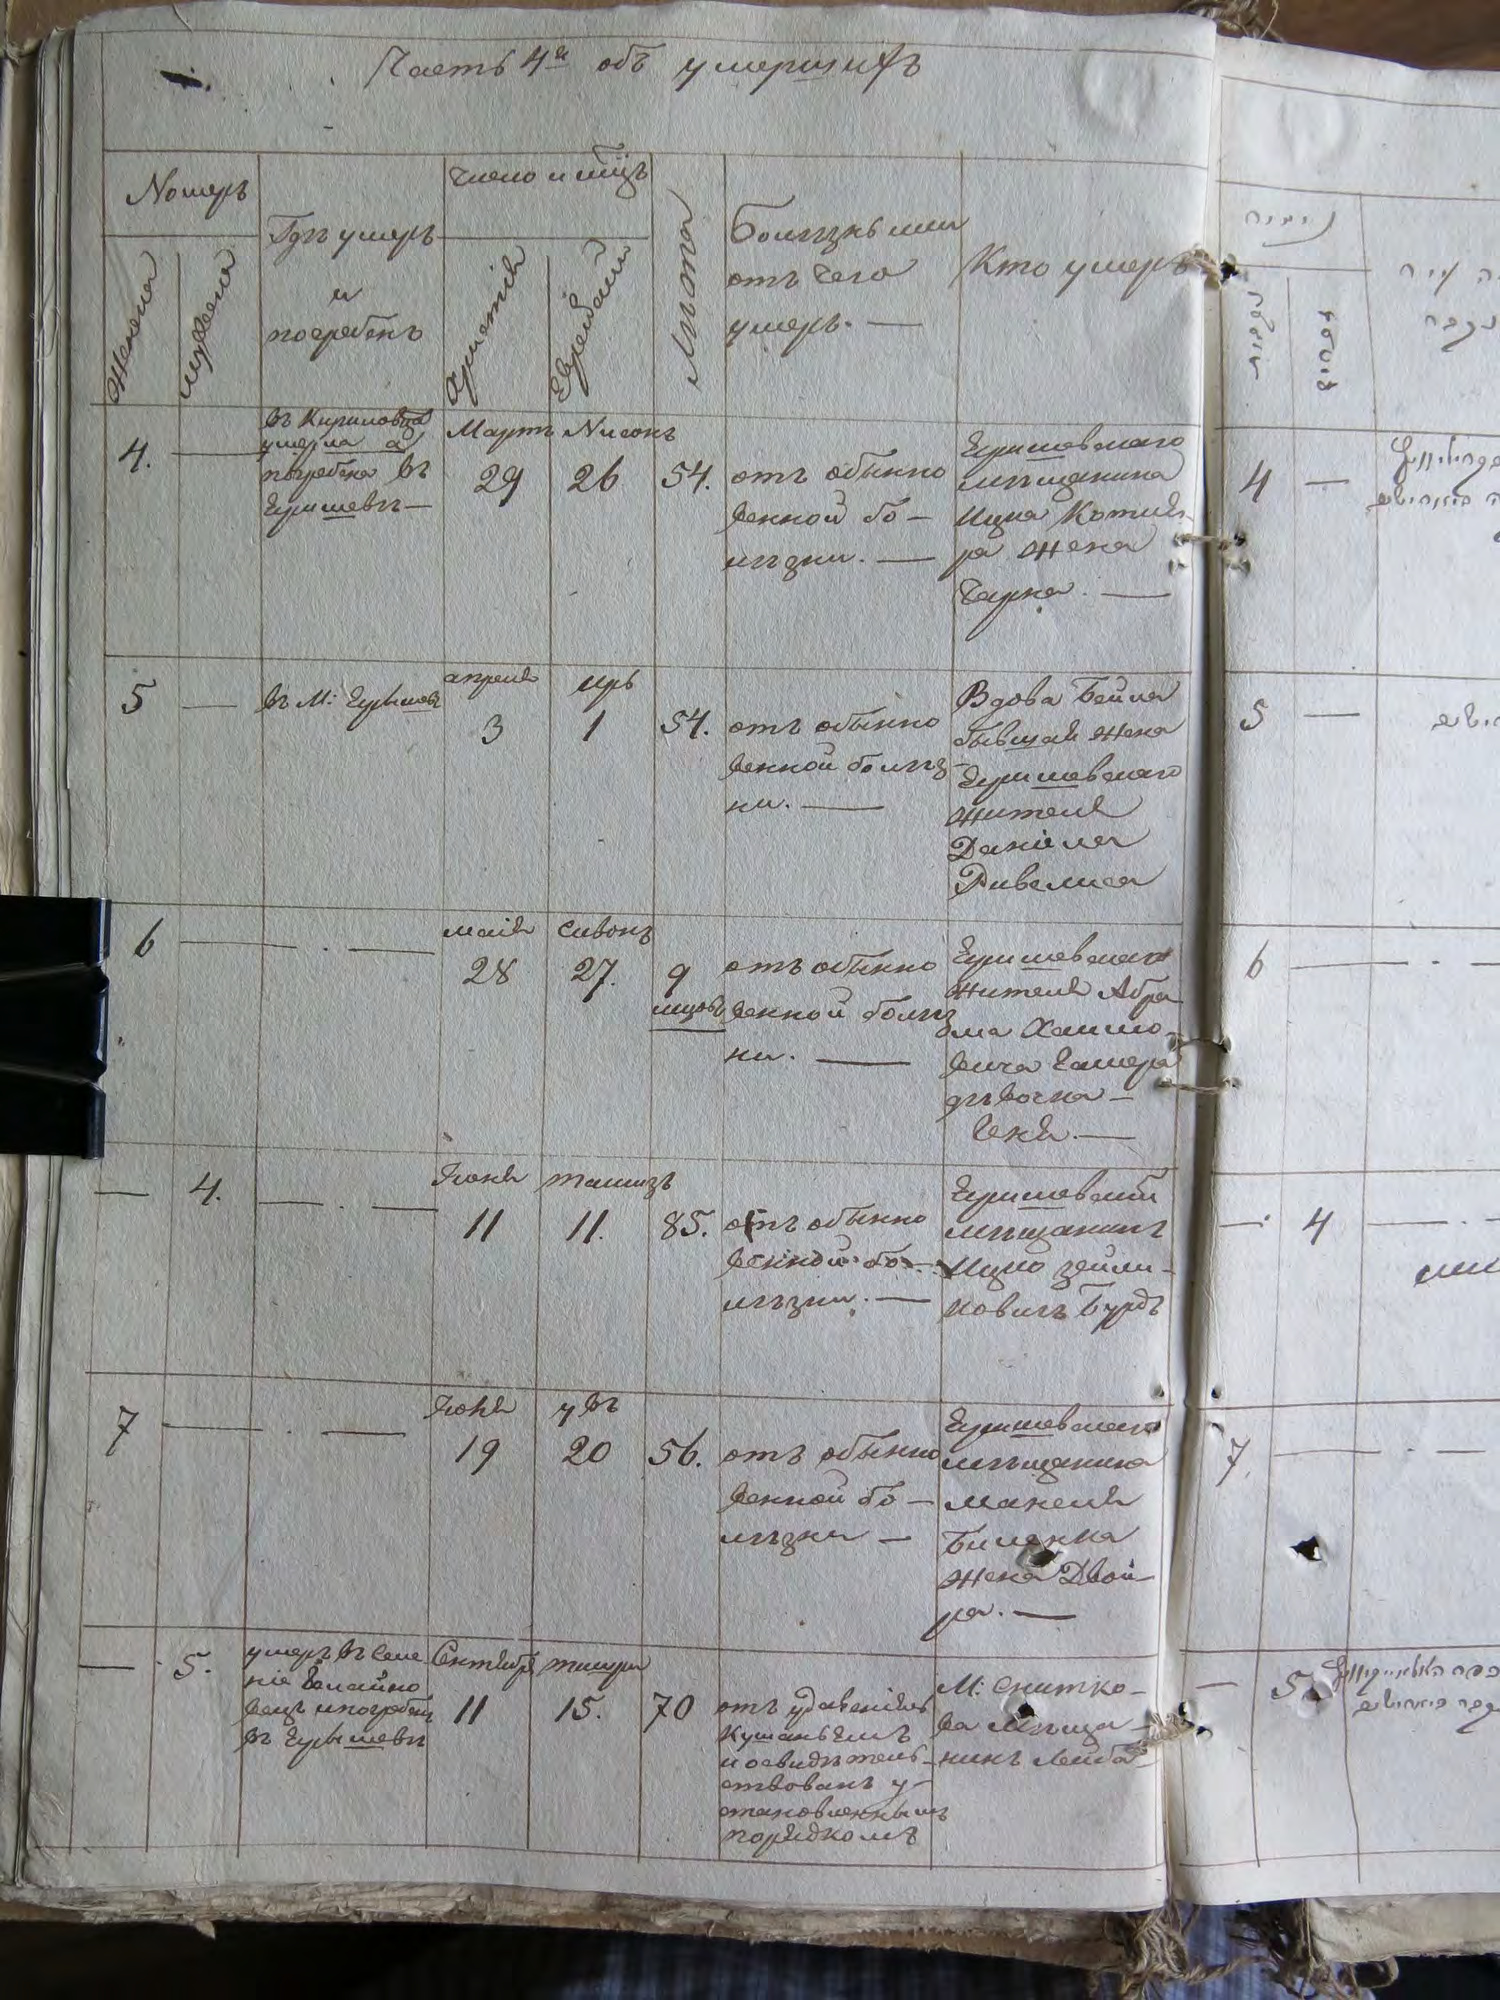 Часть 4я объ умершихъ
Номеръ
Женска
мужеска
Гдѣ умеръ
и
погребенъ
Число и мцъ
Христiян
Еврейский
Лѣта
Болѣзнь или
отъ чего
умеръ. —
Кто умеръ
4. —
въ Кириловца
умерла а
погребена въ
Ерышевѣ —
Мартъ
29
Нисонъ
26
54.
отъ обыкно
венной бо —
лѣзни. —
Ерышевскаго
мѣщанина
Ицка
ра жена
Чарна. —
5 —
въ М: Ерышов
апреля
3
иръ
1
54.
отъ обыкно
венной болѣз
ни. —
Вдова Бейла
бывшая жена
Ерышевскаго
жителя
Данiила
Ривелиса
6 — . —
маiя
28
сивонъ
27.
9
мцов
отъ обыкно
венной болѣз
ни. —
Ерышевскаго
жителя Абра
ма Хаимо
вича
дѣвочка —
—
— 4. — . —
Iюня
11
тамизъ
11.
85.
отъ обыкно
венной бо —
лѣзни. —
Ерышевскiй
мѣщанинъ
Ицко Зейли-
ковичъ Бурдъ
7 — . —
Iюня
19
увъ
20
56.
отъ обыкно
венной бо —
лѣзни —
Ерышевскаго
мѣщанина
Манеля
Биленка
жена Двой
ра. —
— 5.
умеръ въ Селе
нiе
вецъ и погребен
въ Ерышевѣ
Сентября
11
тишри
15.
70
отъ удавенiя
Кушаньемъ
и освидѣтель-
ствованъ у-
становленнымъ
порядкомъ
М: Снитко-
ва мѣща —
нинъ Лейба —
4 —
5 —
6 — . —
— 4 — . —
7 — . —
— 5